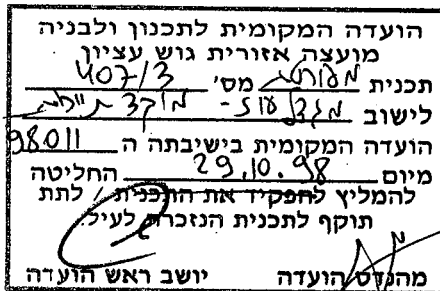 הועדה המקומית לתכנון ולבניה
מועצה אזורית גוש עציון
תכנית מפורטת מס' 407/3
לישוב מגדל עוז - מוקד
הועדה המקומית בישיבתה ה 98011
מיום 29.10.98 החליטה
להמליץ להפקיד את התכנית / לתת
תוקף לתכנית הנזכרת לעיל.
מהנדס הועדה יושב ראש הועדה